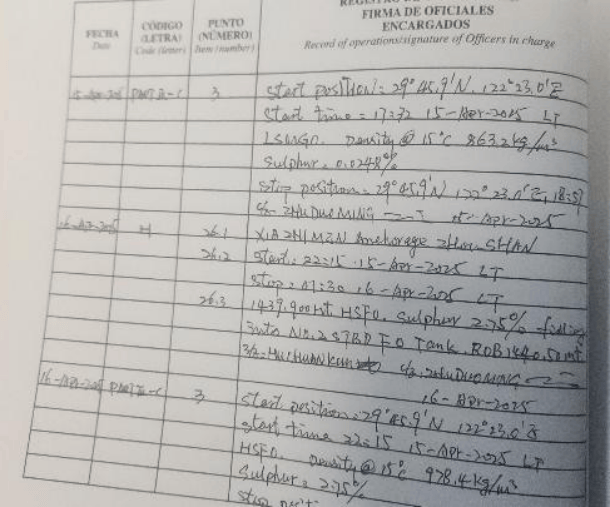 REGISTRO DE
FIRMA DE OFICIALES
ENCARGADOS
Record of operations/signature of Officers in charge
FECHA
Date
CÓDIGO
(LETRA)
Code (letter)
PUNTO
(NÚMERO)
Item (number)
3 Start position: 29° 45.9'N, 122° 23.0'E
Start time: 15-Apr-2025 LT
LSMGO. Density @ 15°C 863.2kg/m³
Sulphur: 0.0248%
Stop position: 29° 45.9'N 122° 23.0'E,
ZHU DUO MING 15-Apr-2025
H 26.1 XIAZHIMEN Anchorage ZHOU SHAN
26.2 Start: 22:15 15-Apr-2025 LT
Stop: 16-Apr-2025 LT
26.3 HSFO. Sulphur 2.75%
into No.2 STBD FO Tank. ROB
16-Apr-2025
16-Apr-2025 3 Start position: 29° 45.9'N 122° 23.0'E
start time 22:15 15-Apr-2025 LT
HSFO. Density @ 15°C 978.4kg/m³
Sulphur: 2.75%